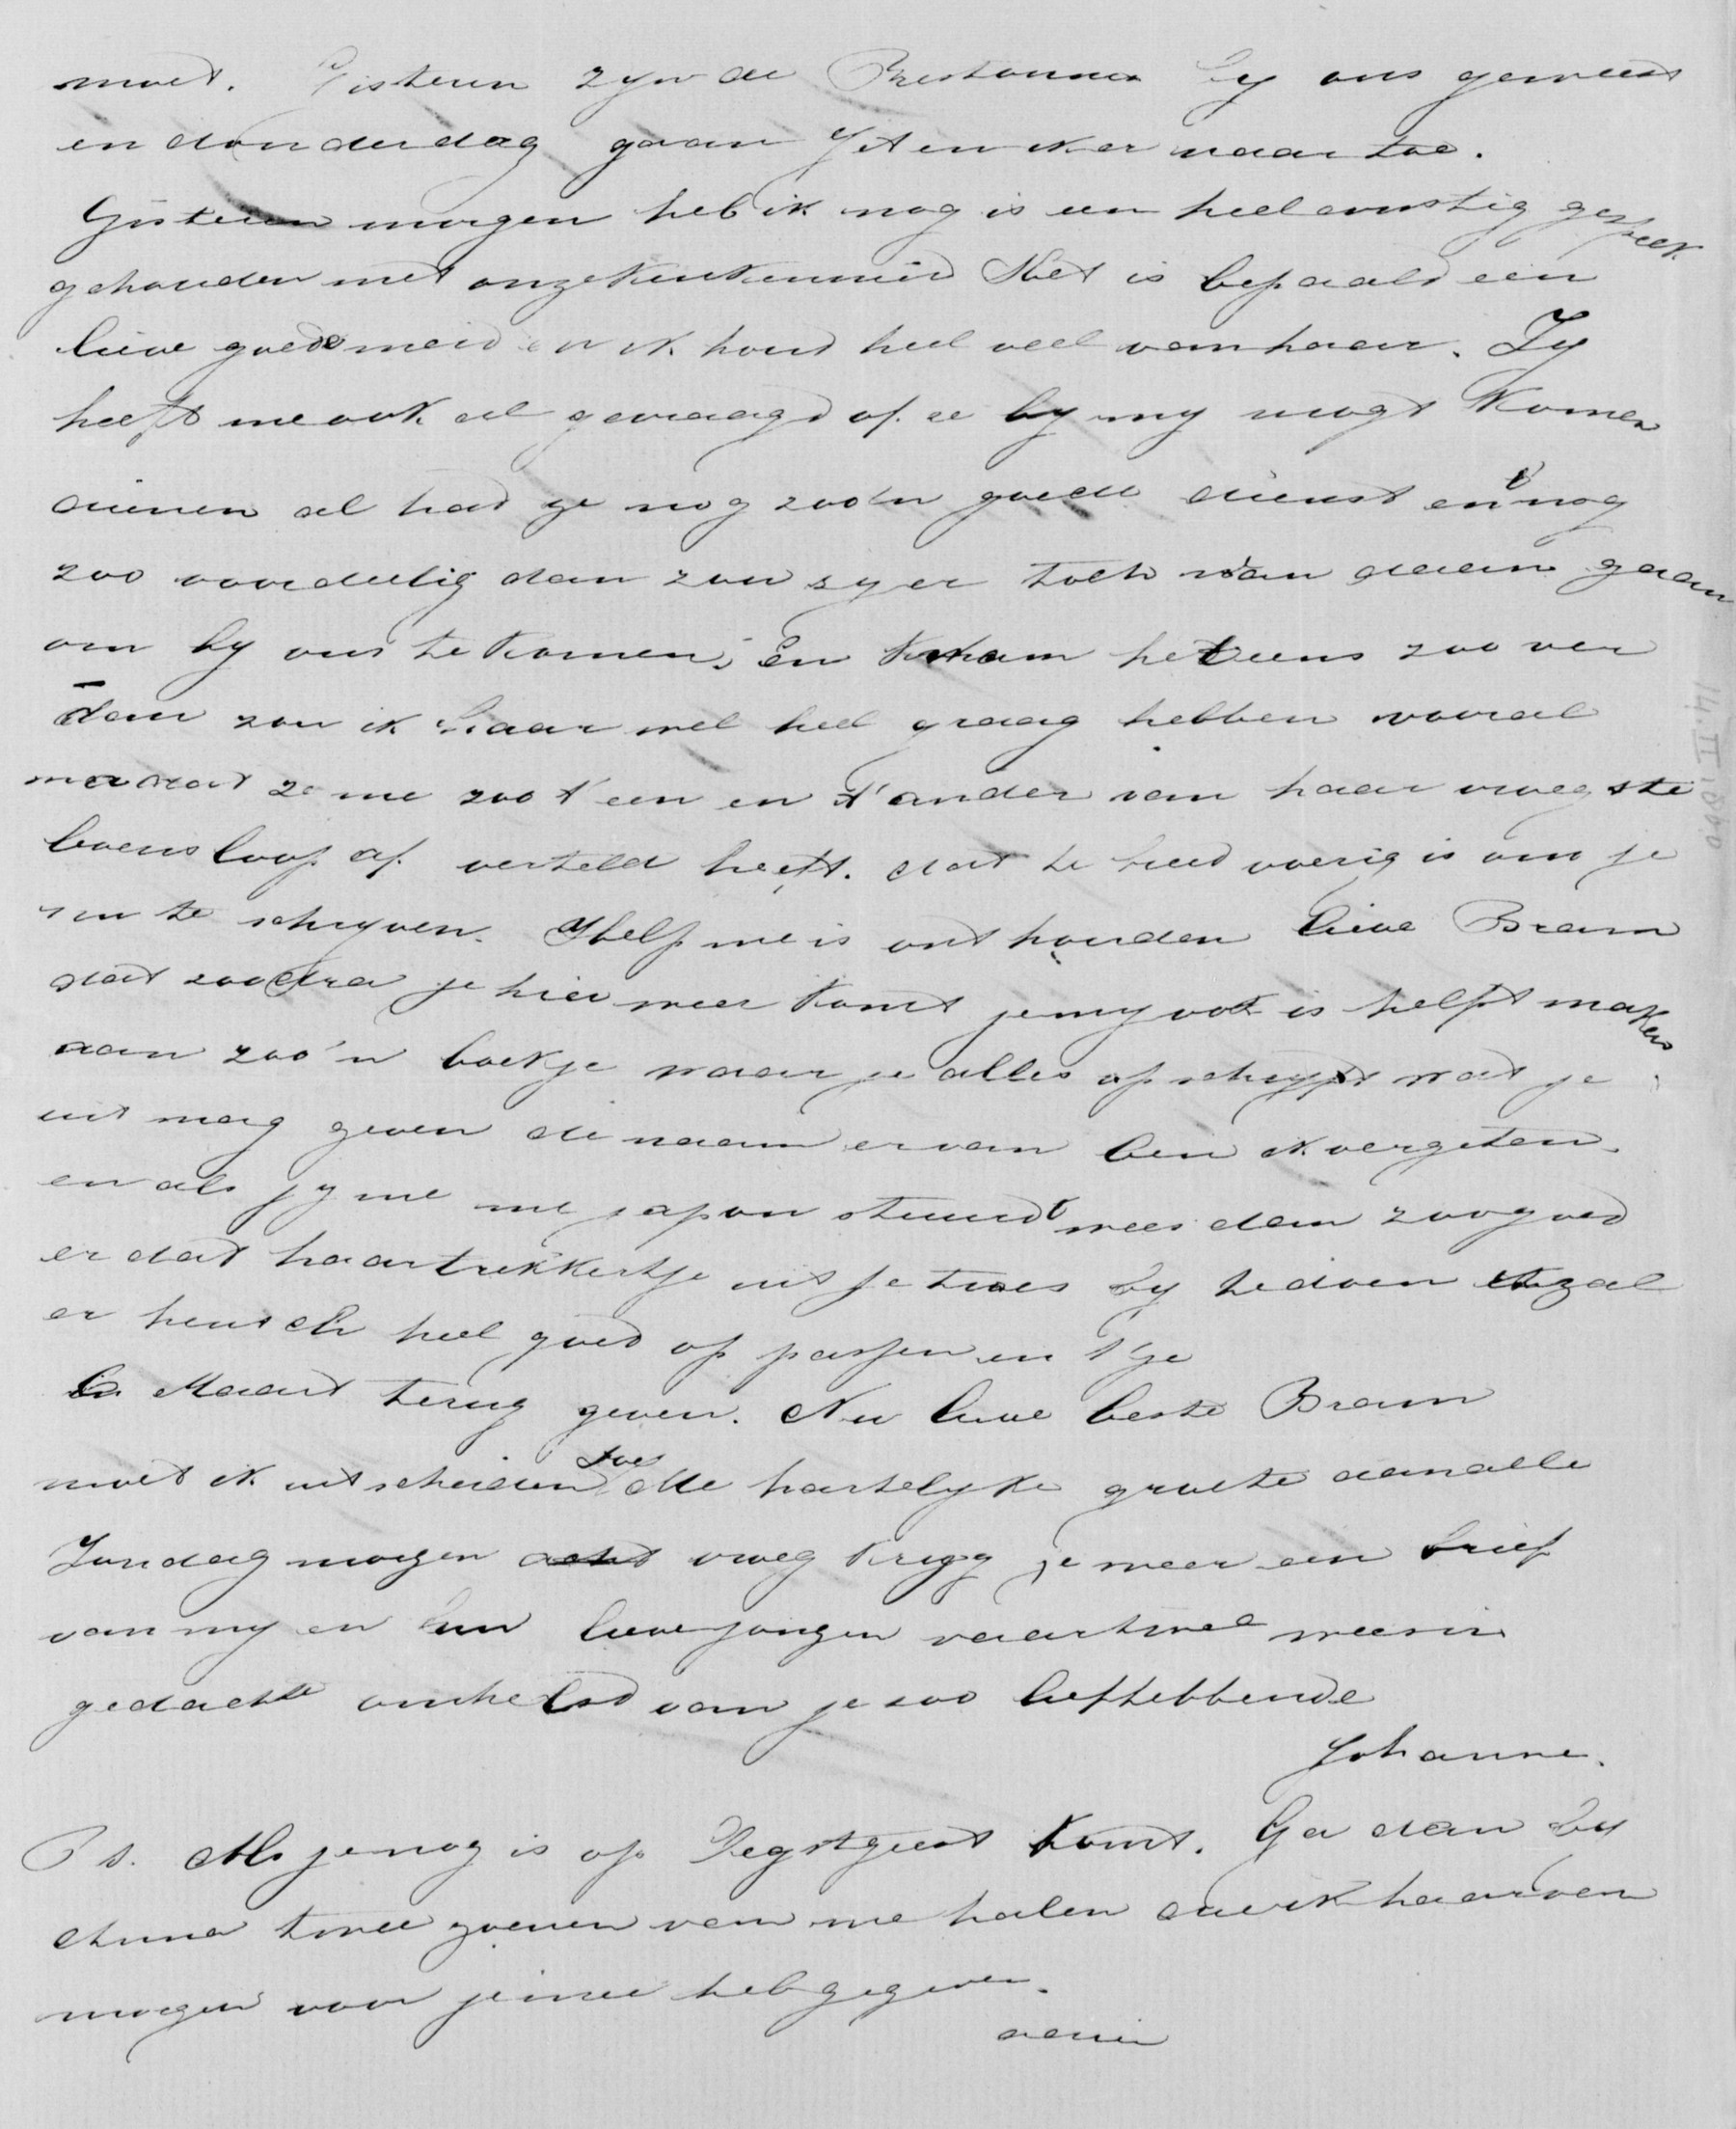 moet. Gisteren zyn de Prestonnes by ons geweest
en donderdag gaan Jet en ik er naar toe.
Gisteren morgen heb ik nog is een heel ernstig gesprek
gehouden met onze keukenmeid Het is bepaald een
lieve goede meid en ik houd heel veel van haar. Zy
heeft me ook al gevraagd of ze by my mogt komen
dienen al had ze nog zoo'n goede dienst en nog
zoo voordeelig dan zou zy er toch van daan gaan
om by ons te komen; En kwam het eens zoo ver
dan zou ik haar wel heel graag hebben vooral
ze me zoo t een en t'ander van haar vroegste
levensloop af verteld heeft. dat te breedvoerig is om je
nu te schryven. Help me is onthouden lieve Bram
dat zoodra je hier weer komt je my ook is helpt maken
aan zoo'n boekje waar je alles op schryft wat je
uit mag geven de naam ervan ben ik vergeten.
en als jy me me japon stuurd wees dan zoo goed
er dat haartrekkertje uit je tres by te doen ik zal
er heusch heel goed op passen en t je
in Maart terug geven. Nu lieve beste Bram
moet ik uitscheiden doe Me hartelyke groete aan alle
Zondag morgen vroeg kryg je weer een brief
van my en nu lieve jongen vaartwel wees in
gedachte omhelsd van je zoo liefhebbende
Johanne.
Ps. Als je nog is op Oegstgeest komt. Ga dan by
Anna twee zoenen van me halen die ik haar van
morgen voor je mee heb gegeven.
adieu
14.II.1860